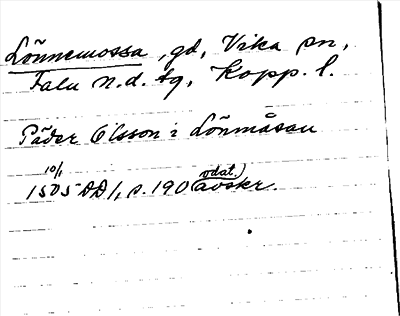 Lönnemossa, gd, Vika sn,
Falu n.d. tg, Kopp. l.
Päder Olsson i Lönmåsan
10/1 1505 DD 1, s. 190 (odat.) avskr.